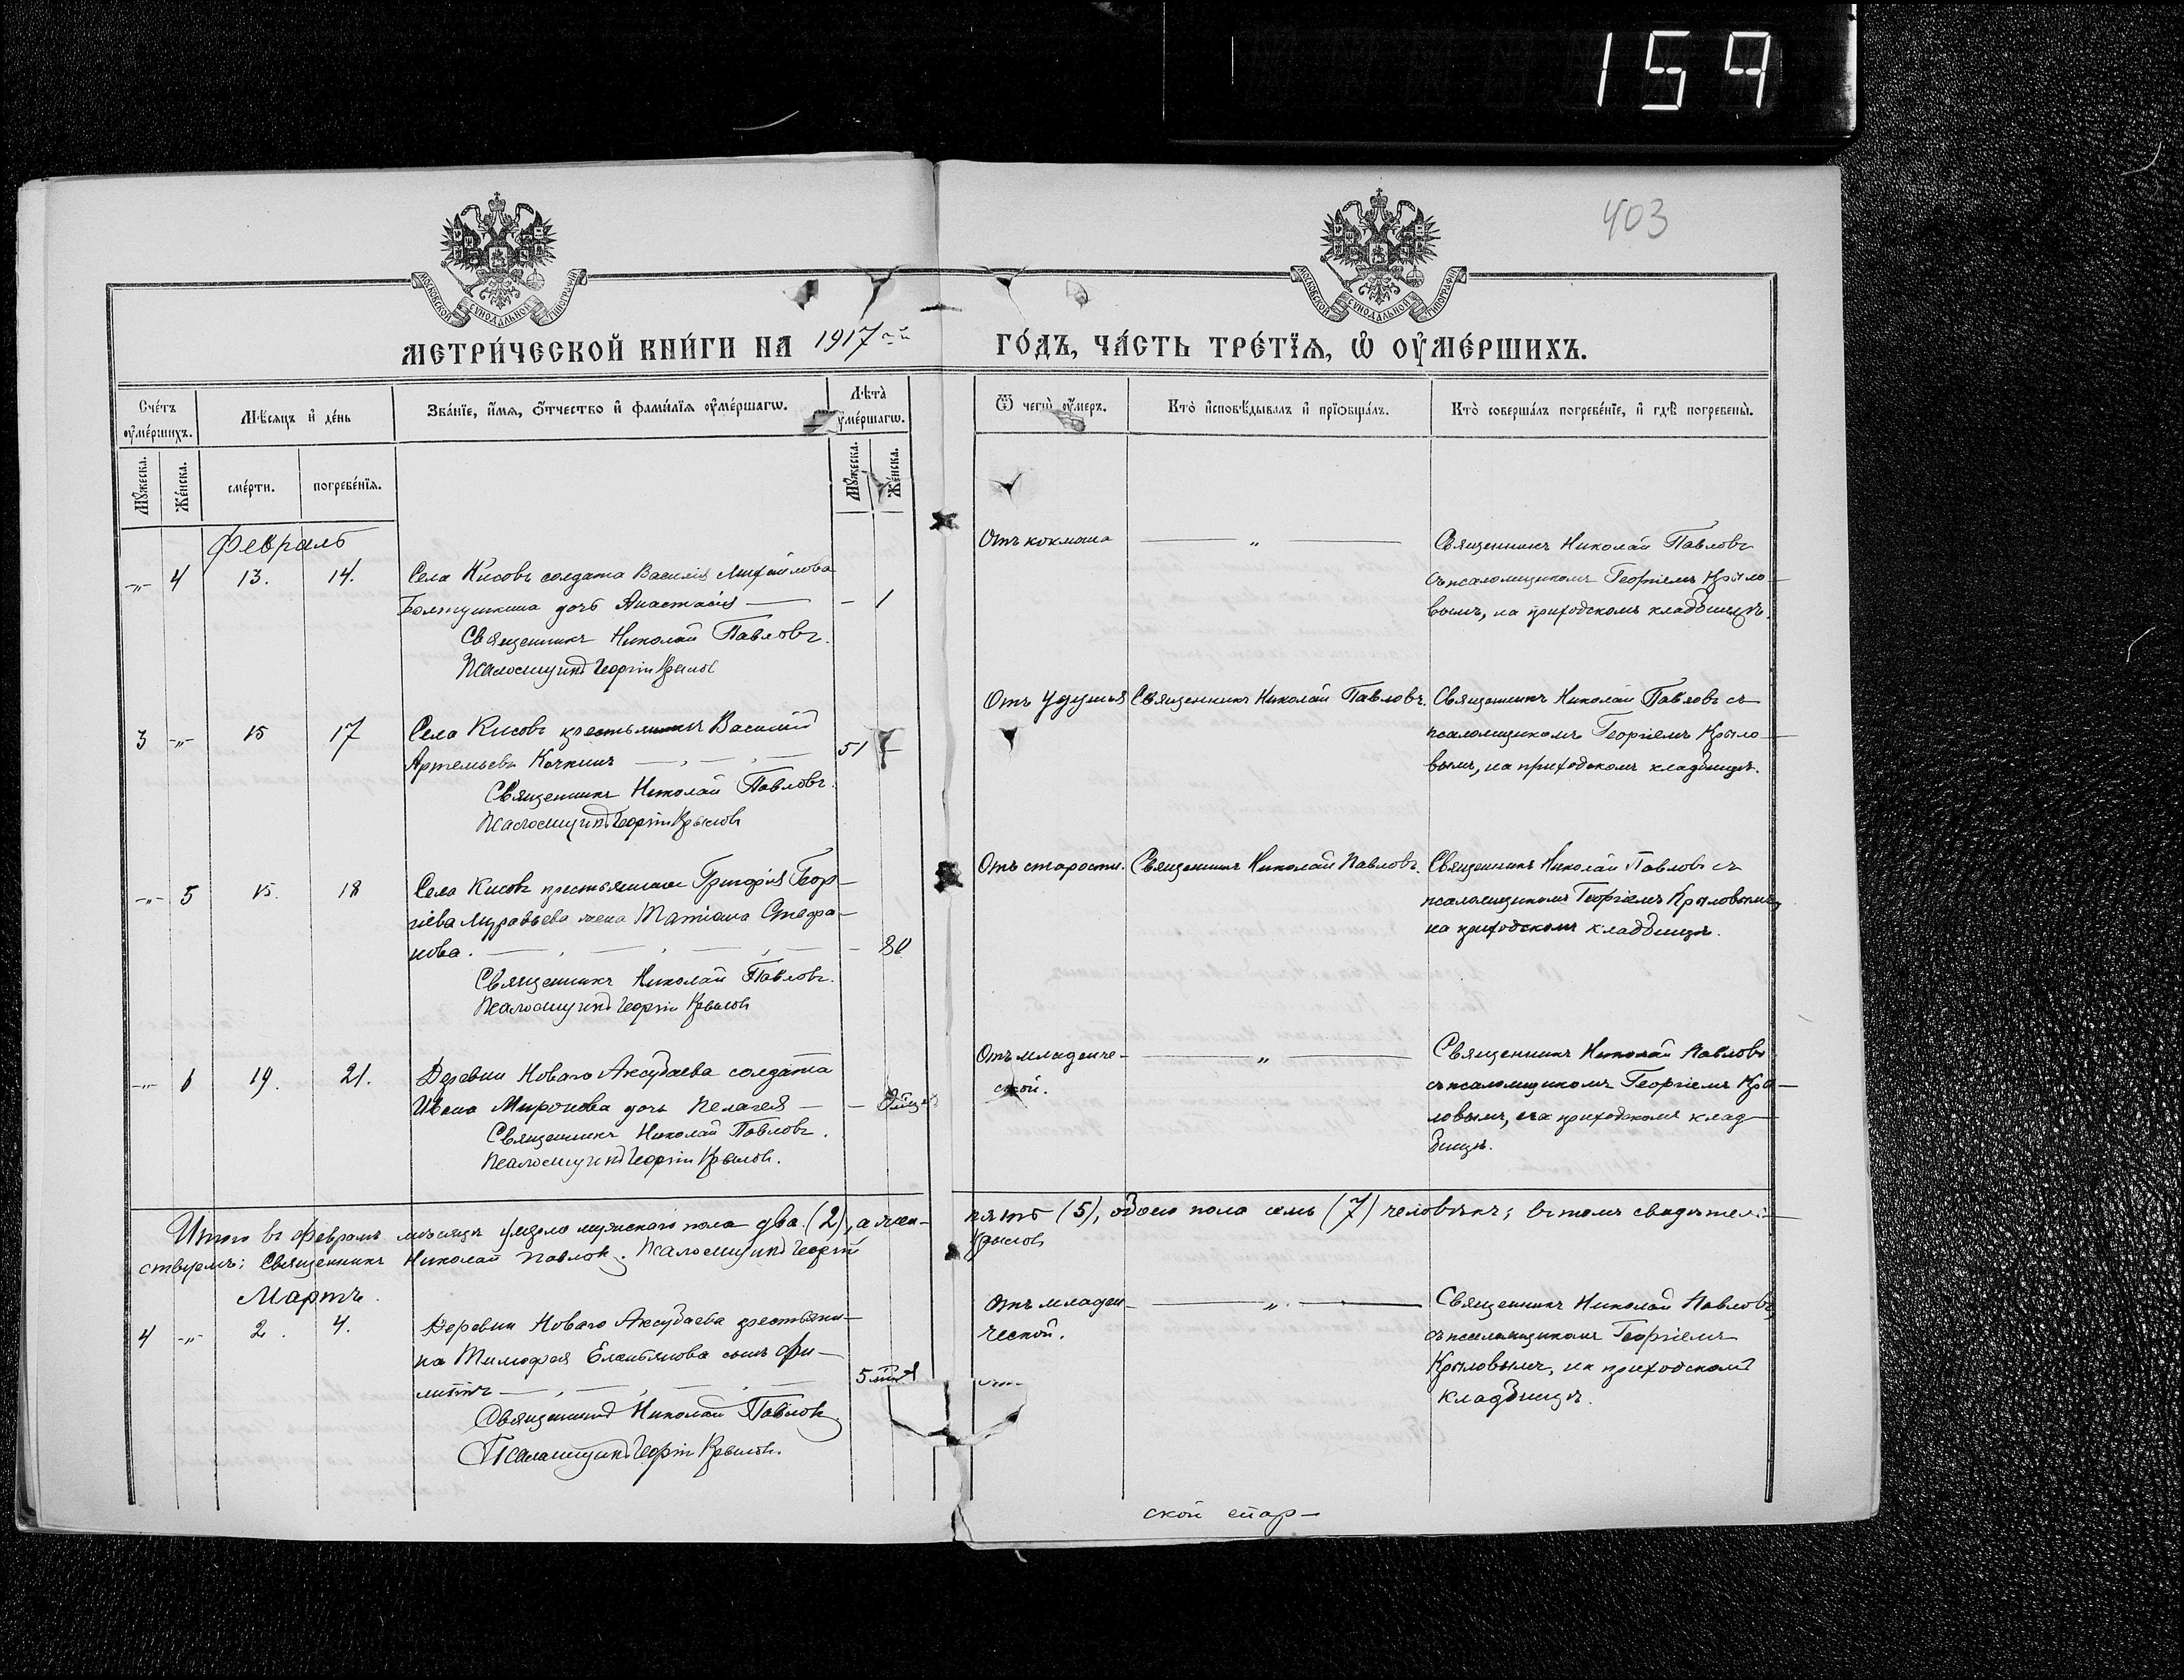 159
403
МОСКОВСКОЙ СѴНОДАЛЬНОЙ ТИПОГРАФІИ
МОСКОВСКОЙ СѴНОДАЛЬНОЙ ТИПОГРАФІИ
МЕТРИ́ЧЕСКОЙ КНИ́ГИ НА 1917ый
ГО́ДЪ, ЧА́СТЬ ТРЕ́ТЇѦ, Ѡ҆ ОУ҆МЕ́РШИХЪ.
Сче́тъ оу҆ме́ршихъ.
Мꙋ́жеска.
Же́нска.
Мѣ́сяцъ и҆ де́нь
сме́рти.
погребе́нїѧ.
Зва́нїе, и҆́мѧ, ѻ҆́тчество и҆ фами́лїѧ оу҆ме́ршагѡ.
Лѣ́та оу҆ме́ршагѡ.
Мꙋ́жеска.
Же́нска.
Ѿ чегѡ̀ оу҆́меръ.
Кто̀ и҆сповѣ́дывалъ и҆ прїѡбща́лъ.
Кто̀ соверша́лъ погребе́нїе, и҆ гдѣ̀ погребены̀.
Февраль
-„- 4 13. 14. Села Кисовъ солдата Василія Михайлова
Болтушкина дочь Анастасія — - 1
Священникъ Николай Павловъ.
Псаломщикъ Георгій Крылов
Отъ коклюша — „ — Священникъ Николай Павловъ
съ псаломщикомъ Георгіемъ Крыло-
вымъ, на приходскомъ кладбищѣ.
3 -„- 15 17 Села Кисовъ крестьянинъ Василій
Артемьевъ Кочкинъ — 51 -
Священникъ Николай Павловъ.
Псаломщикъ Георгій Крылов
Отъ удушья Священникъ Николай Павловъ. Священникъ Николай Павловъ съ
псаломщикомъ Георгіемъ Крыло-
вымъ, на приходскомъ кладбищѣ.
-„- 5 15. 18 Села Кисовъ крестьянина Григорія Геор-
гіева Муравьева жена Татіана Стефа-
нова. — - 80
Священникъ Николай Павловъ.
Псаломщикъ Георгій Крылов
Отъ старости. Священникъ Николай Павловъ. Священникъ Николай Павловъ съ
псаломщикомъ Георгіемъ Крыловымъ,
на приходскомъ кладбищѣ.
-„- 6 19. 21. Деревни Новаго Аксубаева солдата
Ивана Миронова дочь Пелагея — -
Священникъ Николай Павловъ.
Псаломщикъ Георгій Крылов.
Отъ младенче- — „ — Священникъ Николай Павловъ
ской. съ псаломщикомъ Георгіемъ Кры-
ловымъ, на приходскомъ клад-
бищѣ.
Итого въ февралѣ мѣсяцѣ умерло мужскаго пола два (2), а жен- пять (5), обоего пола семь (7) человѣкъ; въ томъ свидѣтель-
ствуемъ: Священникъ Николай Павлов. Псаломщикъ Георгій Крылов
Мартъ.
4 -„- 2. 4. Деревни Новаго Аксубаева крестьяни-
на Тимофея Емельянова сынъ Фи-
липпъ — 5
Священникъ Николай Павлов
Псаломщикъ Георгій Крылов.
Отъ младен- — „ — Священникъ Николай Павловъ
ческой. съ псаломщикомъ Георгіемъ
Крыловымъ, на приходскомъ
кладбищѣ.
ской